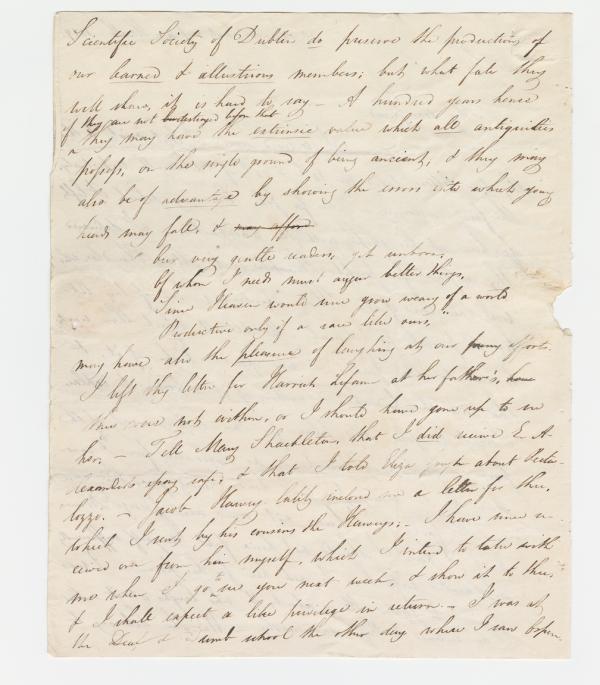 Scientific Society of Dublin do preserve the productions of
our learned & illustrious members; but what fate they
will share, it is hard to say - A hundred years hence
if they are not destroyed before that
they may have the extrinsic value which all antiquities
possess, on the single ground of being ancient, & they may
also be of advantage by showing the errors into which young
heads may fall, & may afford
Our very gentle readers, yet unborn,
Of whom I needs must augur better things,
Since Heaven would sure grow weary of a world
Productive only of a race like ours,"
may have also the pleasure of laughing at our funny efforts.
I left thy letter for Harriet Lefanu at her father's,
she was not within, or I should have gone up to see
her. - Tell Mary Shackleton, that I did receive E. A-
lexander's essay safe & that I told Eliza about Pesta-
lozzi. - Jacob Harvey lately inclosed me a letter for thee,
which I sent by his cousins the Harveys; - I have since re-
ceived one from him myself, which I intend to take with
me when I go to see you next week, & show it to thee,
& I shall expect a like privilege in return. - I was at
the Deaf & Dumb school the other day where I saw